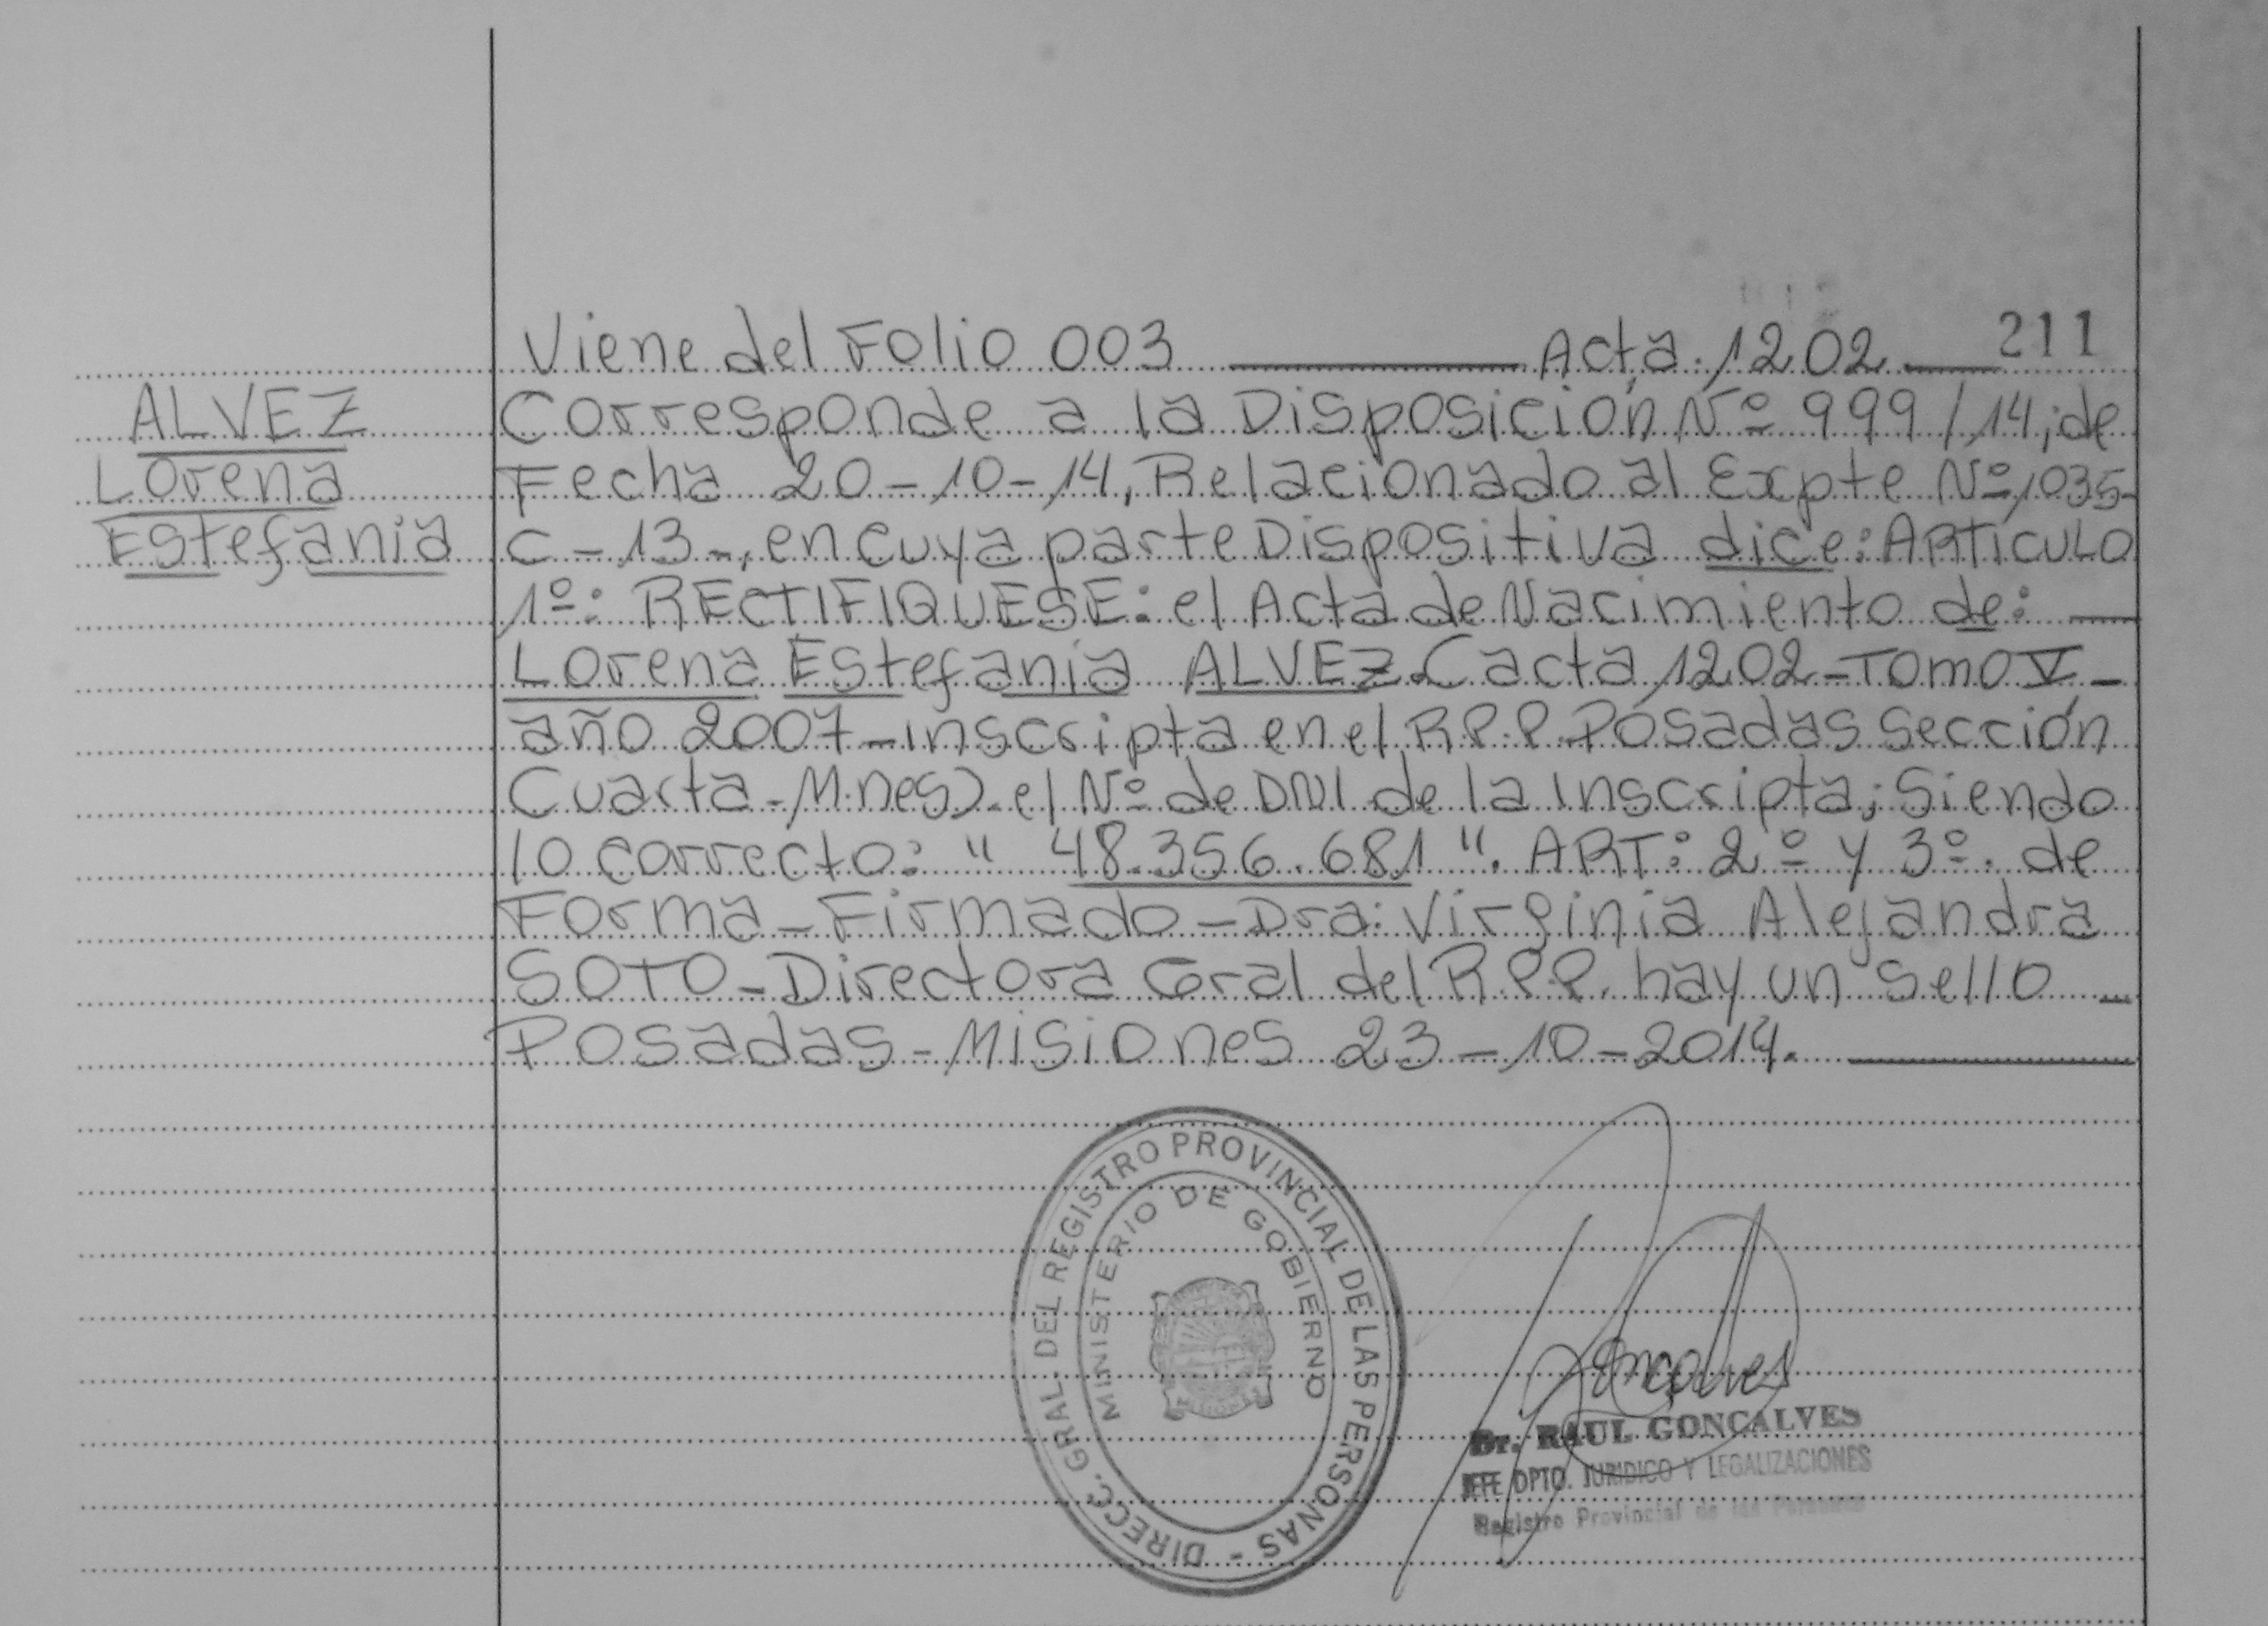 Viene del Folio 003 Acta 1202 211
ALVEZ
Lorena
Estefania
Corresponde a la Disposición Nº 999/14; de
Fecha 20-10-14, Relacionado al Expte Nº 1035-
C-13-, en cuya parte Dispositiva dice: ARTICULO
1º: RECTIFIQUESE: el Acta de Nacimiento de:
Lorena Estefania ALVEZ (acta 1202-Tomo V-
año 2007-inscripta en el R.P.P. Posadas Sección
Cuarta-M.nes). el Nº de DNI de la Inscripta; Siendo
lo correcto: " 48.356.681 ". ART: 2º y 3º. de
Forma-Firmado-Dra: Virginia Alejandra
SOTO-Directora Gral del R.P.P. hay un sello
Posadas-Misiones 23-10-2014.
DIRECC. GRAL. DEL REGISTRO PROVINCIAL DE LAS PERSONAS -
MINISTERIO DE GOBIERNO
Goncalves
Dr. RAUL GONCALVES
JEFE DPTO. JURIDICO Y LEGALIZACIONES
Registro Provincial de las Personas